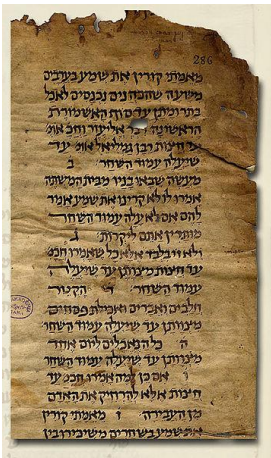 286
מאמתי קורין את שמע בערבים
משעה שהכהנים נכנסים לאכל
בתרומתן עד סוף האשמורת
הראשונה אליעזר וחכ אומ׳
עד חצות רבן גמליאל אומ׳ עד
שיעלה עמוד השחר ב
מעשה שבאו בניו מבית המשתה
אמרו לו לא קרינו את שמע אמר
להם אם לא עלה עמוד השחר
מותרין אתם ליקרות ג
ולא זו בלבד אלא כל שאמרו חכמ׳
עד חצות מיצותן עד שיעלה
עמוד השחר הקטר
חלבים ואברים ואכילת פסחים
מיצוותן עד שיעלה עמוד השחר
ה כל הנאכלים ליום אחד
מיצוותן עד שיעלה עמוד השחר
ו אם כן למה אמרו חכמ׳ עד
חצות אלא להרחיק את האדם
מן העבירה ז מאמתי קורין
את שמע בשחרים משיכירו בין